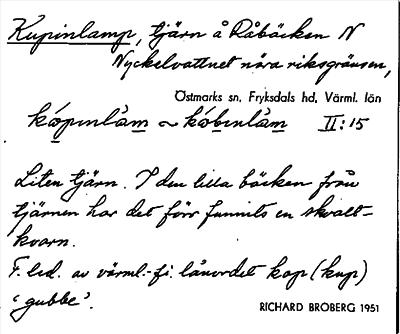 Kupinlamp, tjärn å Råbäcken N
Nyckelvattnet nära riksgränsen,
Östmarks sn, Fryksdals hd, Värml. län
kópinlàm ~ kóbinlàm II:15
Liten tjärn. I den lilla bäcken från
tjärnen har det förr funnits en skvalt-
kvarn.
F. led. av värml.-fi. lånordet kop (kup)
'gubbe'.
RICHARD BROBERG 1951